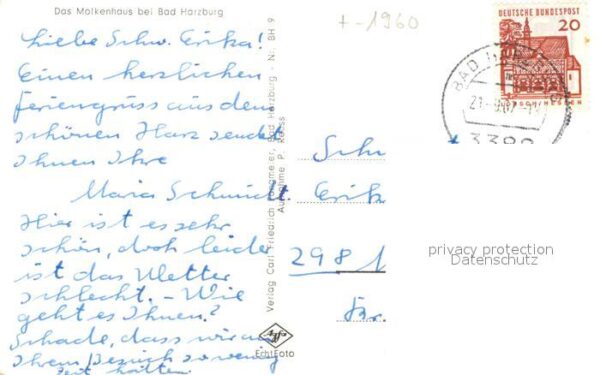 Das Molkenhaus bei Bad Harzburg
+-1960
DEUTSCHE BUNDESPOST
20
LORSCH/HESSEN
BAD HARZBURG
3388
Liebe Schw. Erika!
Einen herzlichen
Feriengruss aus dem
schönen Harz sendet
Ihnen Ihre
Maria Schmidt.
Hier ist es sehr
schön, doch leider
ist das Wetter
schlecht. - Wie
geht es Ihnen?
Schade, dass wir in
Ihrem Besuch so wenig
Zeit hatten.
Verlag Carl Friedrich Fangmeier, Bad Harzburg - Nr. BH 9
Aufnahme P.
Agfa
Echt Foto
Schw
Erik
2981
privacy protection
Datenschutz